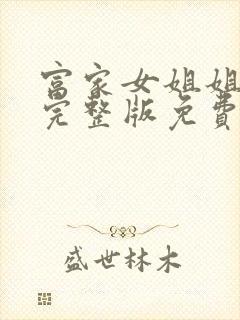 富家女姐姐
完整版免費
盛世林木